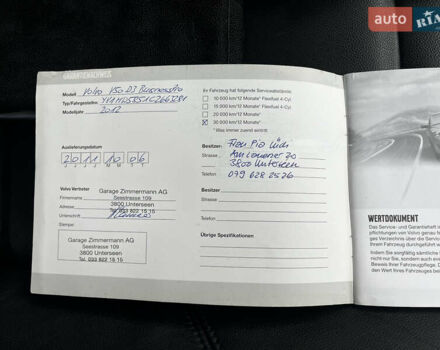 auto RIA
GARANTIENACHWEIS
Modell Volvo V50 D3 BusinessPro
Typ/Fahrgestellnr.
Modelljahr 2012
Ihr Fahrzeug hat folgende Serviceabstände:
10 000 km/12 Monate* Flexifuel 4-Cyl
15 000 km/12 Monate* Flexifuel 4-Cyl
20 000 km/12 Monate*
30 000 km/12 Monate*
*Was immer zuerst eintritt
Auslieferungsdatum
2 0 1 1 1 0 0 6
J J J J M M T T
Besitzer: Frau Pia
Strasse 20
3800 Unterseen
Telefon 079 628 25 76
Volvo Vertreter
Firmenname
Strasse
Unterschrift
Garage Zimmermann AG
Seestrasse 109
3800 Unterseen
Tel. 033 822 15 15
Stempel:
Garage Zimmermann AG
Seestrasse 109
3800 Unterseen
Tel. 033 822 15 15
Besitzer:
Strasse
Telefon
Übrige Spezifikationen:
WERTDOKUMENT
Das Service- und Garantieheft is
pflichtungen von Volvo genau fe
ges Verzeichnis über die Service
Ihrem Fahrzeug durchgeführt wo
Indem Sie sorgfältig sämtliche
nicht nur Sie, sondern auch ein
Beweis Ihrer Fahrzeugpflege. D
den Wert Ihres Fahrzeugs bei